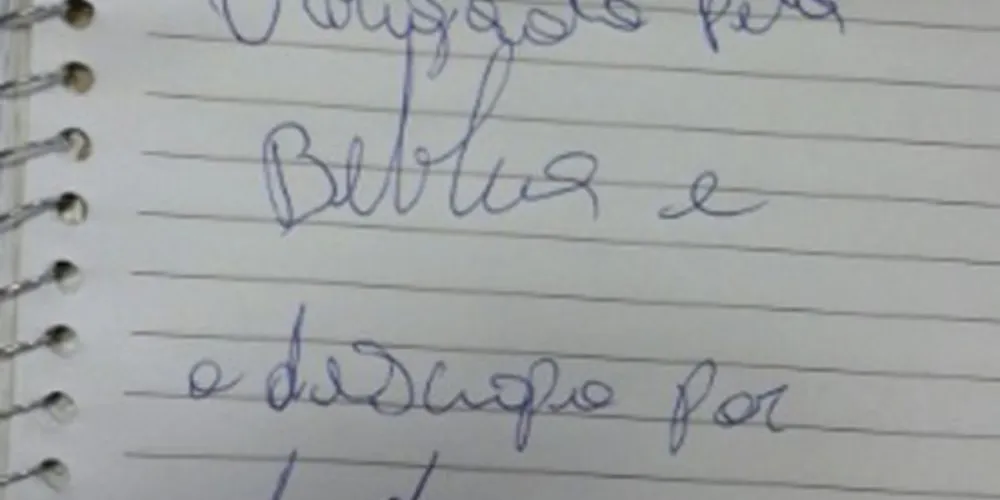 Obrigado pela
Beblia e
e descupa por